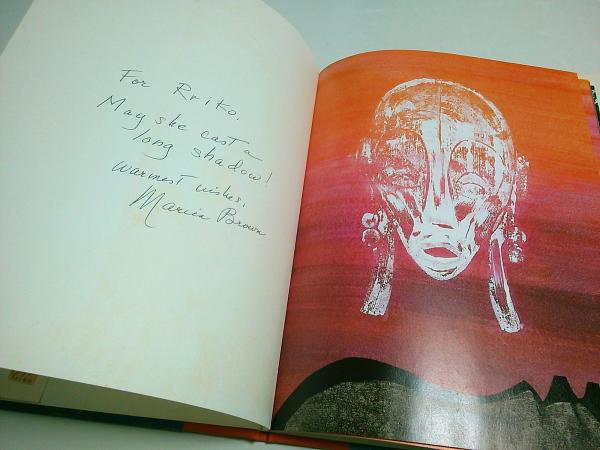 For Rriko.
May she cast a
long shadow!
Warmest wishes,
Marcia Brown